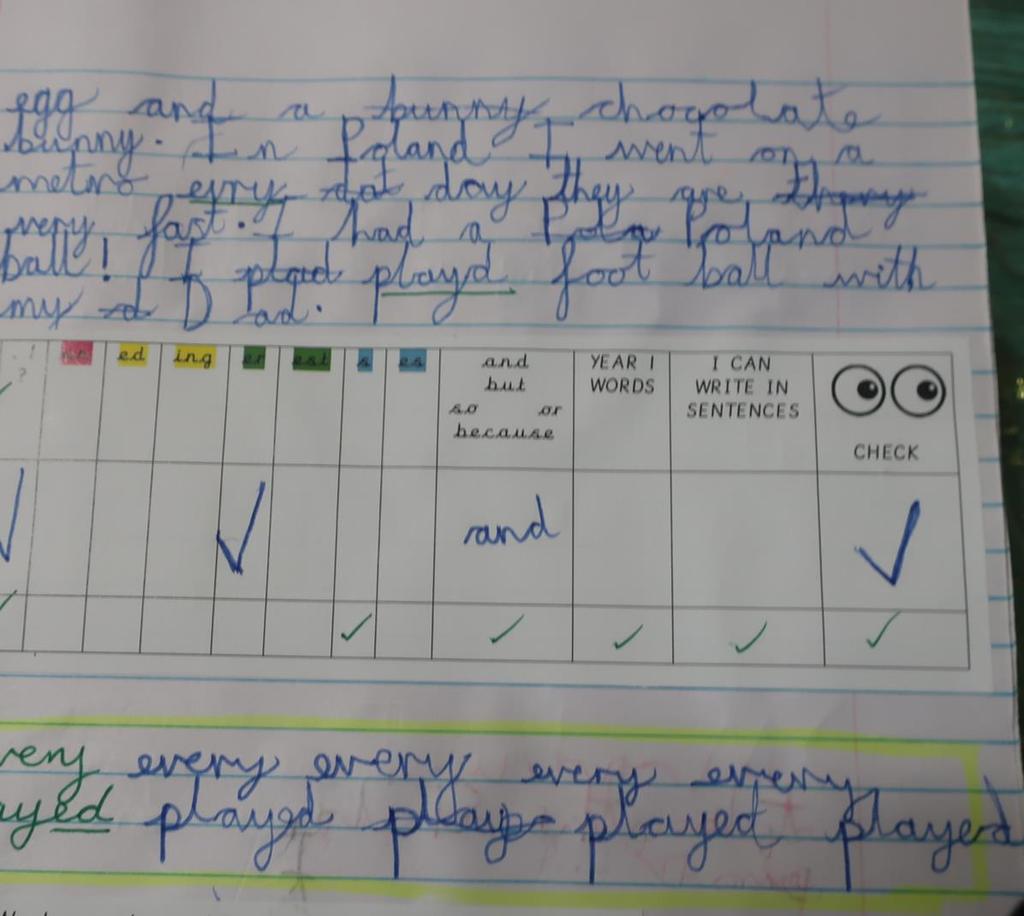 egg and a bunny chocolate
bunny. In Poland I went on a
metro evry dat day they are
very fast. I had a Pola Poland
ball! I plad playd foot ball with
my d Dad.
. ! ?
ed ing er est s es
and but so or because
YEAR 1 WORDS
I CAN WRITE IN SENTENCES
CHECK
and
very every every every every
ayed played play played played